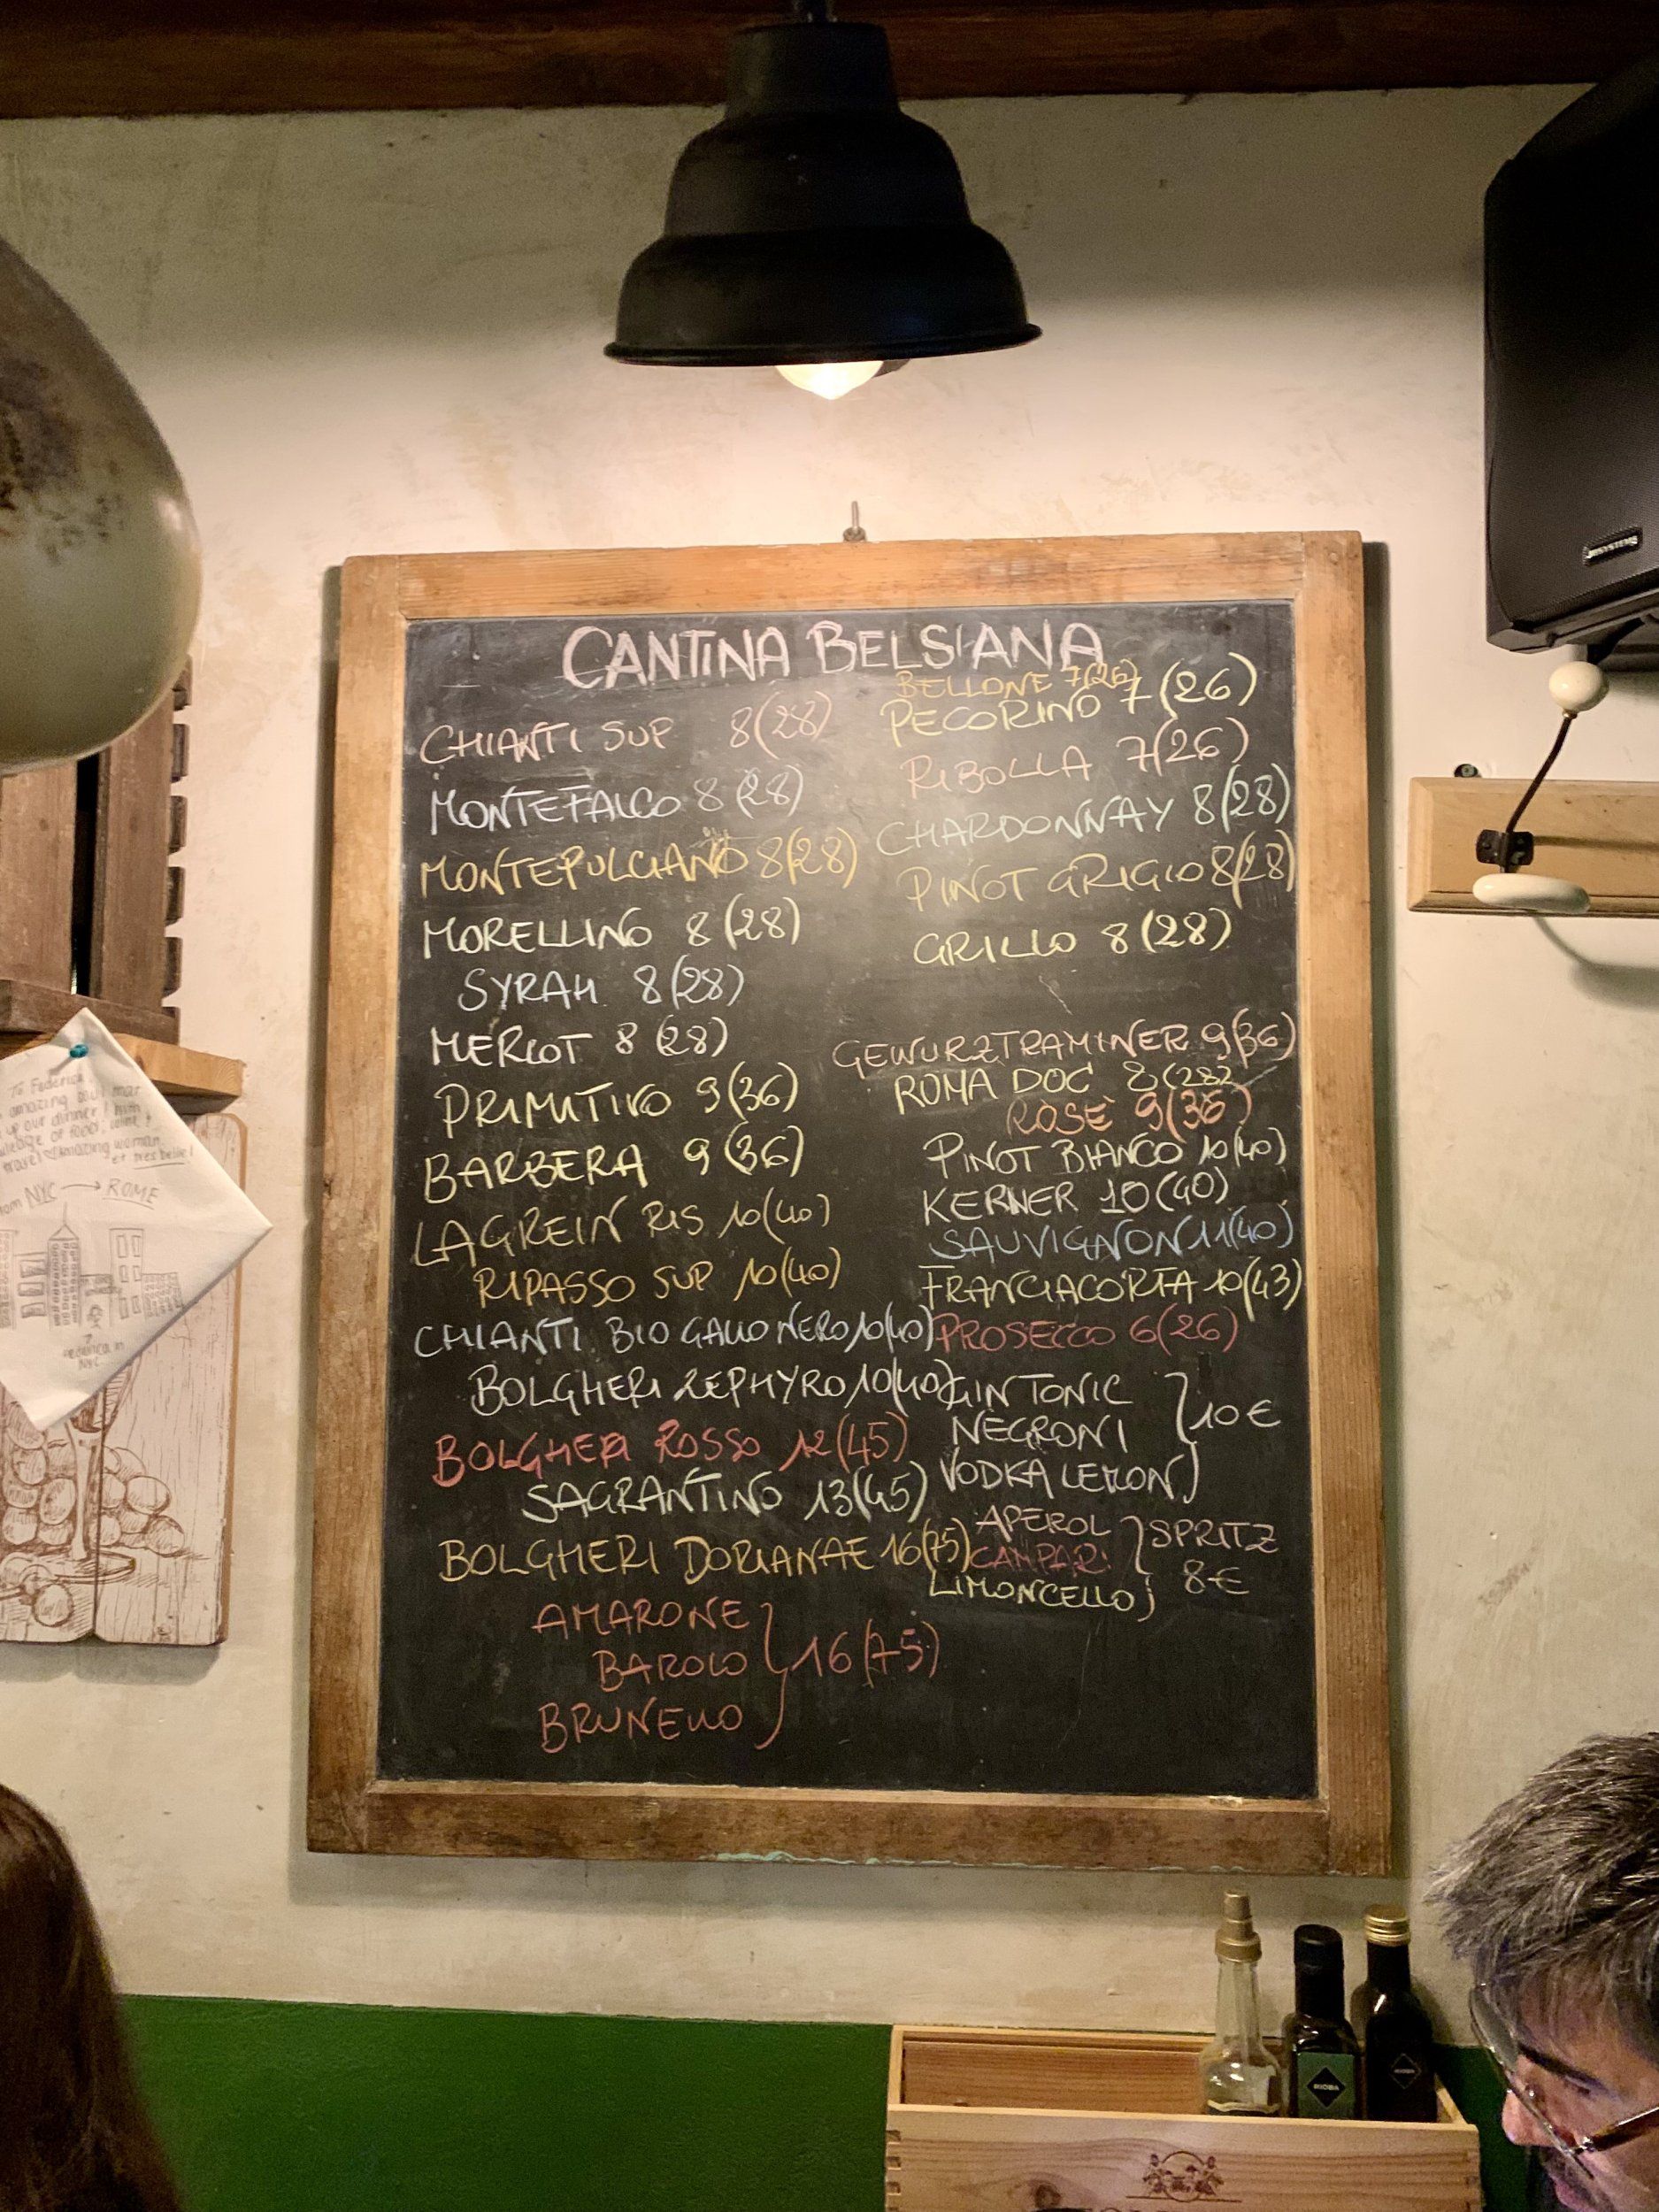 CANTINA BELSIANA
CHIANTI SUP 8(28)
MONTEFALCO 8(28)
MONTEPULCIANO 8(28)
MORELLINO 8(28)
SYRAH 8(28)
MERLOT 8(28)
PRIMITIVO 9(36)
BARBERA 9(36)
LAGREIN RIS 10(40)
RIPASSO SUP 10(40)
CHIANTI BIO GALLO NERO 10(40)
BOLGHERI ZEPHYRO 10(40)
BOLGHERI ROSSO 12(45)
SAGRANTINO 13(45)
BOLGHERI DORIANAE 16(75)
AMARONE
BAROLO
BRUNELLO
16(75)
BELLONE 7(26)
PECORINO 7(26)
RIBOLLA 7(26)
CHARDONNAY 8(28)
PINOT GRIGIO 8(28)
GRILLO 8(28)
GEWURZTRAMINER 9(36)
ROMA DOC 8(28)
ROSÈ 9(36)
PINOT BIANCO 10(40)
KERNER 10(40)
SAUVIGNON 11(40)
FRANCIACORTA 10(43)
PROSECCO 6(26)
GIN TONIC
NEGRONI
VODKA LEMON
10€
APEROL
CAMPARI
LIMONCELLO
SPRITZ
8€
To Federica
amazing
up our dinner! with
of food, wine +
travel amazing woman
et très belle!
NYC → ROME
Federica in
NYC
RIOBA